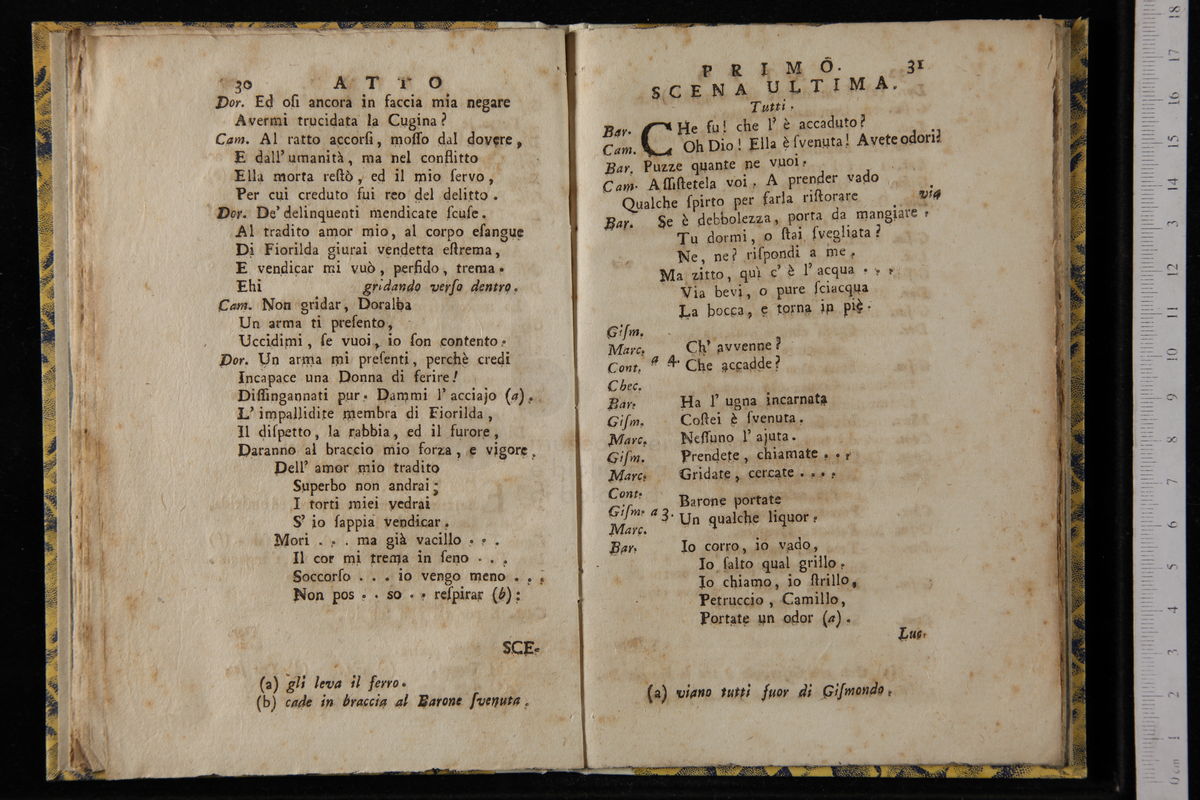 30 ATTO
Dor. Ed oſi ancora in faccia mia negare
Avermi trucidata la Cugina?
Cam. Al ratto accorſi, moſſo dal dovere,
E dall' umanità, ma nel conflitto
Ella morta reſtò, ed il mio ſervo,
Per cui creduto fui reo del delitto.
Dor. De' delinquenti mendicate ſcuſe.
Al tradito amor mio, al corpo eſangue
Di Fiorilda giurai vendetta eſtrema,
E vendicar mi vuò, perfido, trema.
Ehi gridando verſo dentro.
Cam. Non gridar, Doralba
Un arma ti preſento,
Uccidimi, ſe vuoi, io ſon contento.
Dor. Un arma mi preſenti, perchè credi
Incapace una Donna di ferire!
Diſſingannati pur. Dammi l' acciajo (a).
L' impallidite membra di Fiorilda,
Il diſpetto, la rabbia, ed il furore,
Daranno al braccio mio forza, e vigore.
Dell' amor mio tradito
Superbo non andrai;
I torti miei vedrai
S' io ſappia vendicar.
Mori . . . ma già vacillo . . .
Il cor mi trema in ſeno . . .
Soccorſo . . . io vengo meno . . .
Non pos . . so . . reſpirar (b):
SCE-
(a) gli leva il ferro.
(b) cade in braccia al Barone ſvenuta.
PRIMO. 31
SCENA ULTIMA.
Tutti.
Bar. CHe fu! che l' è accaduto?
Cam. Oh Dio! Ella è ſvenuta! Avete odori?
Bar. Puzze quante ne vuoi.
Cam. Aſſiſtetela voi. A prender vado
Qualche ſpirto per farla riſtorare. via
Bar. Se è debbolezza, porta da mangiare.
Tu dormi, o ſtai ſvegliata?
Ne, ne? riſpondi a me.
Ma zitto, quì c' è l' acqua . . .
Via bevi, o pure ſciacqua
La bocca, e torna in piè.
Giſm.
Marc. Ch' avvenne?
Cont. a 4. Che accadde?
Chec.
Bar. Ha l' ugna incarnata
Giſm. Coſtei è ſvenuta.
Marc. Neſſuno l' ajuta.
Giſm. Prendete, chiamate . . .
Marc. Gridate, cercate . . . .
Cont. Barone portate
Giſm. a 3. Un qualche liquor.
Marc.
Bar. Io corro, io vado,
Io ſalto qual grillo.
Io chiamo, io ſtrillo,
Petruccio, Camillo,
Portate un odor (a).
Luc.
(a) viano tutti fuor di Giſmondo.
0 cm 1 2 3 4 5 6 7 8 9 10 11 12 13 14 15 16 17 18